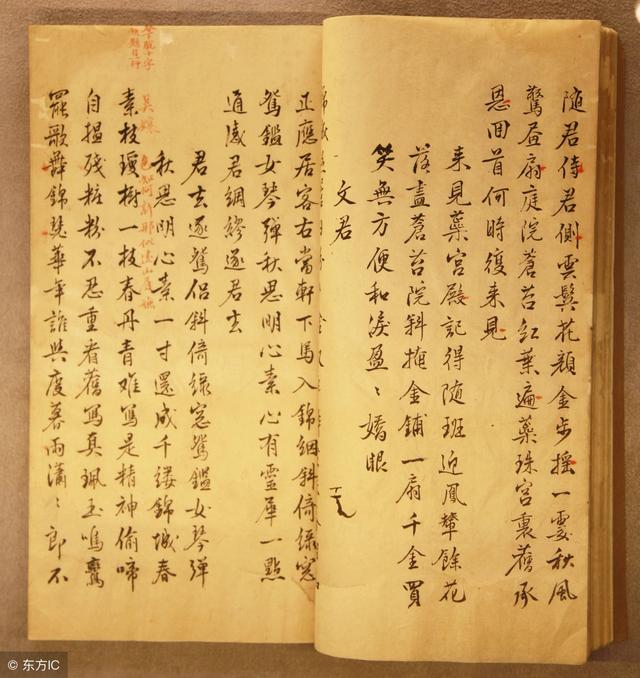 随君侍君側雲鬓花顔金步摇一霎秋風
驚昼扇庭院蒼苔红葉遍蘂珠宫裏舊承
恩回首何時復来見
来見蘂宫殿記得随班迎鳳輦餘花
落盡蒼苔院斜掩金鋪一扇千金買
笑無方便和淚盈〻嬌眼
文君
正應居客右當軒下馬入錦絪斜倚緑窓
鴛鑑女琴弹秋思明心素心有靈犀一點
通感君綢繆逐君去
君去逐鴛侣斜倚緑窓鴛鑑女琴弹
秋思明心素一寸還成千縷錦城春
色知何許那似遠山眉嫵
吴娘
素枝瓊樹一枝春丹青难寫是精神偷啼
自揾残粧粉不忍重看舊寫真珮玉鳴鸞
罷歌舞錦瑟華年誰與度暮雨瀟〻郎不
© 东方IC